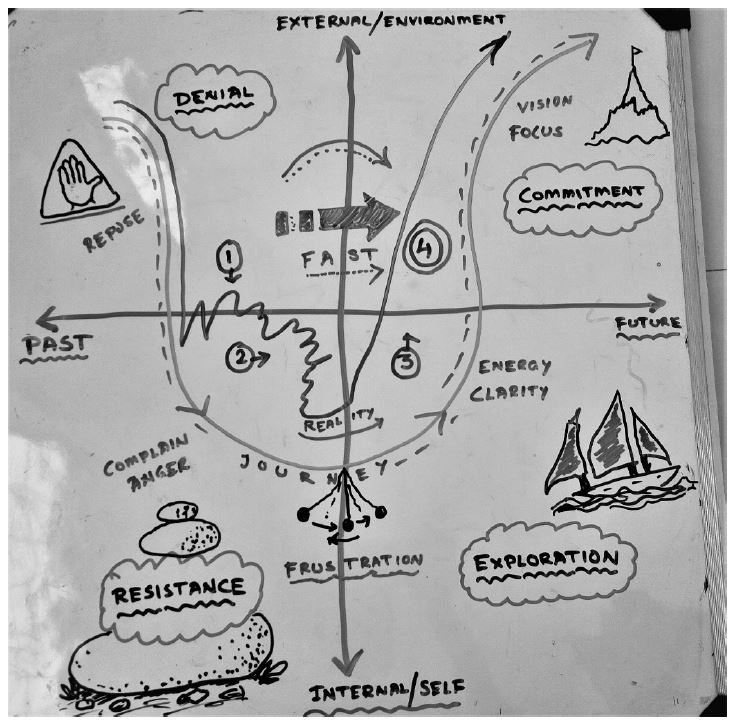 EXTERNAL/ENVIRONMENT
DENIAL
VISION
FOCUS
COMMITMENT
REFUSE
1
FAST
4
PAST
FUTURE
2
3
ENERGY
CLARITY
REALITY
COMPLAIN
ANGER
JOURNEY
FRUSTRATION
RESISTANCE
EXPLORATION
INTERNAL/SELF